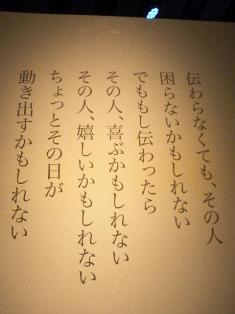 伝わらなくても、その人
困らないかもしれない
でももし伝わったら
その人、喜ぶかもしれない
その人、嬉しいかもしれない
ちょっとその日が
動き出すかもしれない